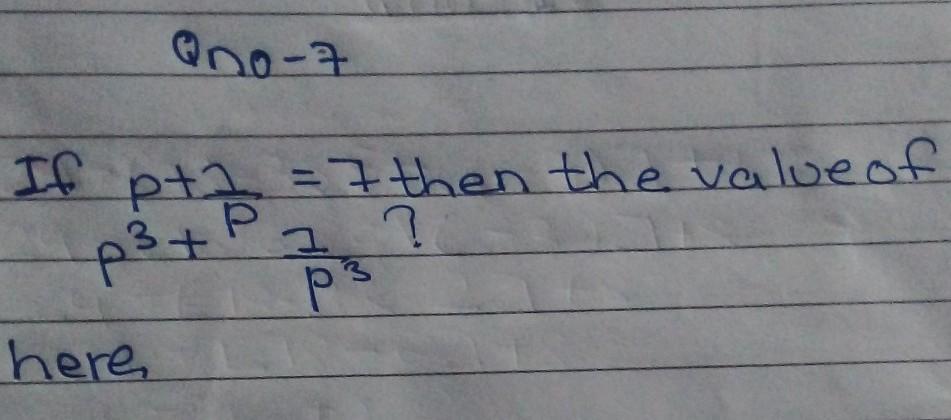 Qno-7
If p+1/p = 7 then the value of
p³+ 1/p³ ?
here,